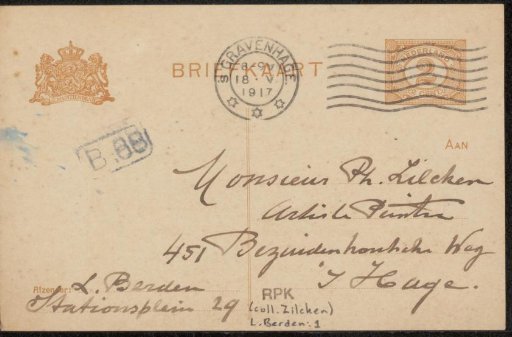 BRIEFKAART
'S GRAVENHAGE
18 V
1917
NEDERLAND
2
B.88
AAN
Monsieur Ph. Zilcken
Artiste Peintre
451 Bezuidenhoutsche Weg
'S Hage.
Afzender: L. Berden
Stationsplein 29
RPK
(coll. Zilcken)
L. Berden: 1